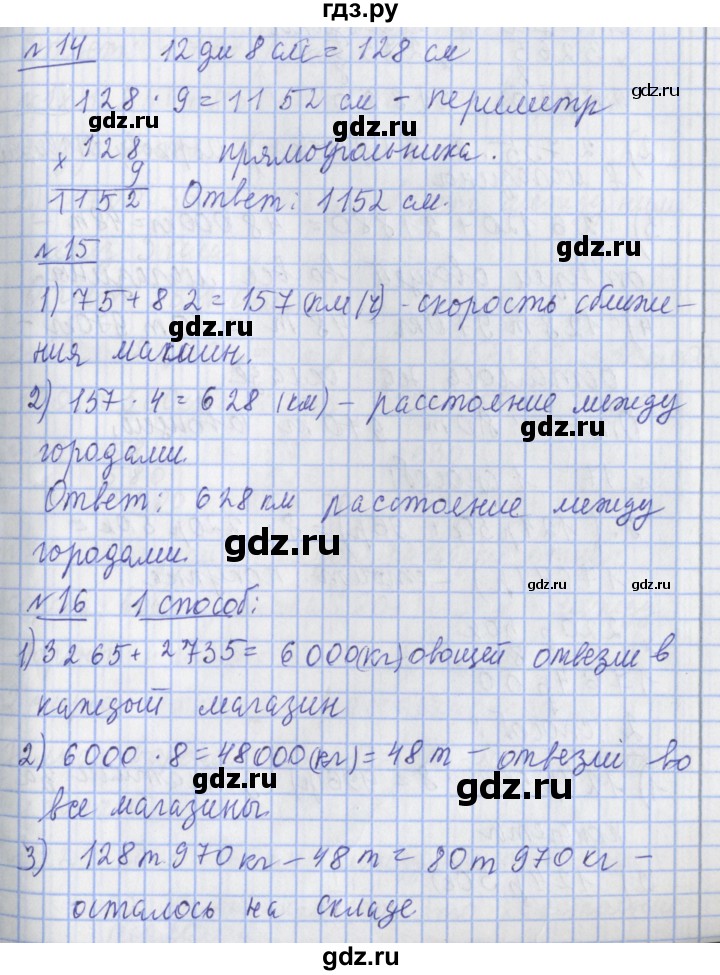 гдз.ру
№ 14 12 дм 8 см = 128 см
128 · 9 = 1152 см - периметр
gdz.ru gdz.ru
× 128 прямоугольника.
9
1152 Ответ: 1152 см.
gdz.ru
№ 15
1) 75 + 82 = 157 (км/ч) - скорость сближе-
gdz.ru
ния машин.
2) 157 · 4 = 628 (км) - расстояние между
gdz.ru
городами.
Ответ: 628 км расстояние между
gdz.ru
городами.
gdz.ru gdz.ru
№ 16 1 способ:
1) 3265 + 2735 = 6000 (кг) овощей отвезли в
каждый магазин
2) 6000 · 8 = 48000 (кг) = 48 т - отвезли во
gdz.ru gdz.ru
все магазины.
3) 128 т 970 кг - 48 т = 80 т 970 кг -
осталось на складе
gdz.ru